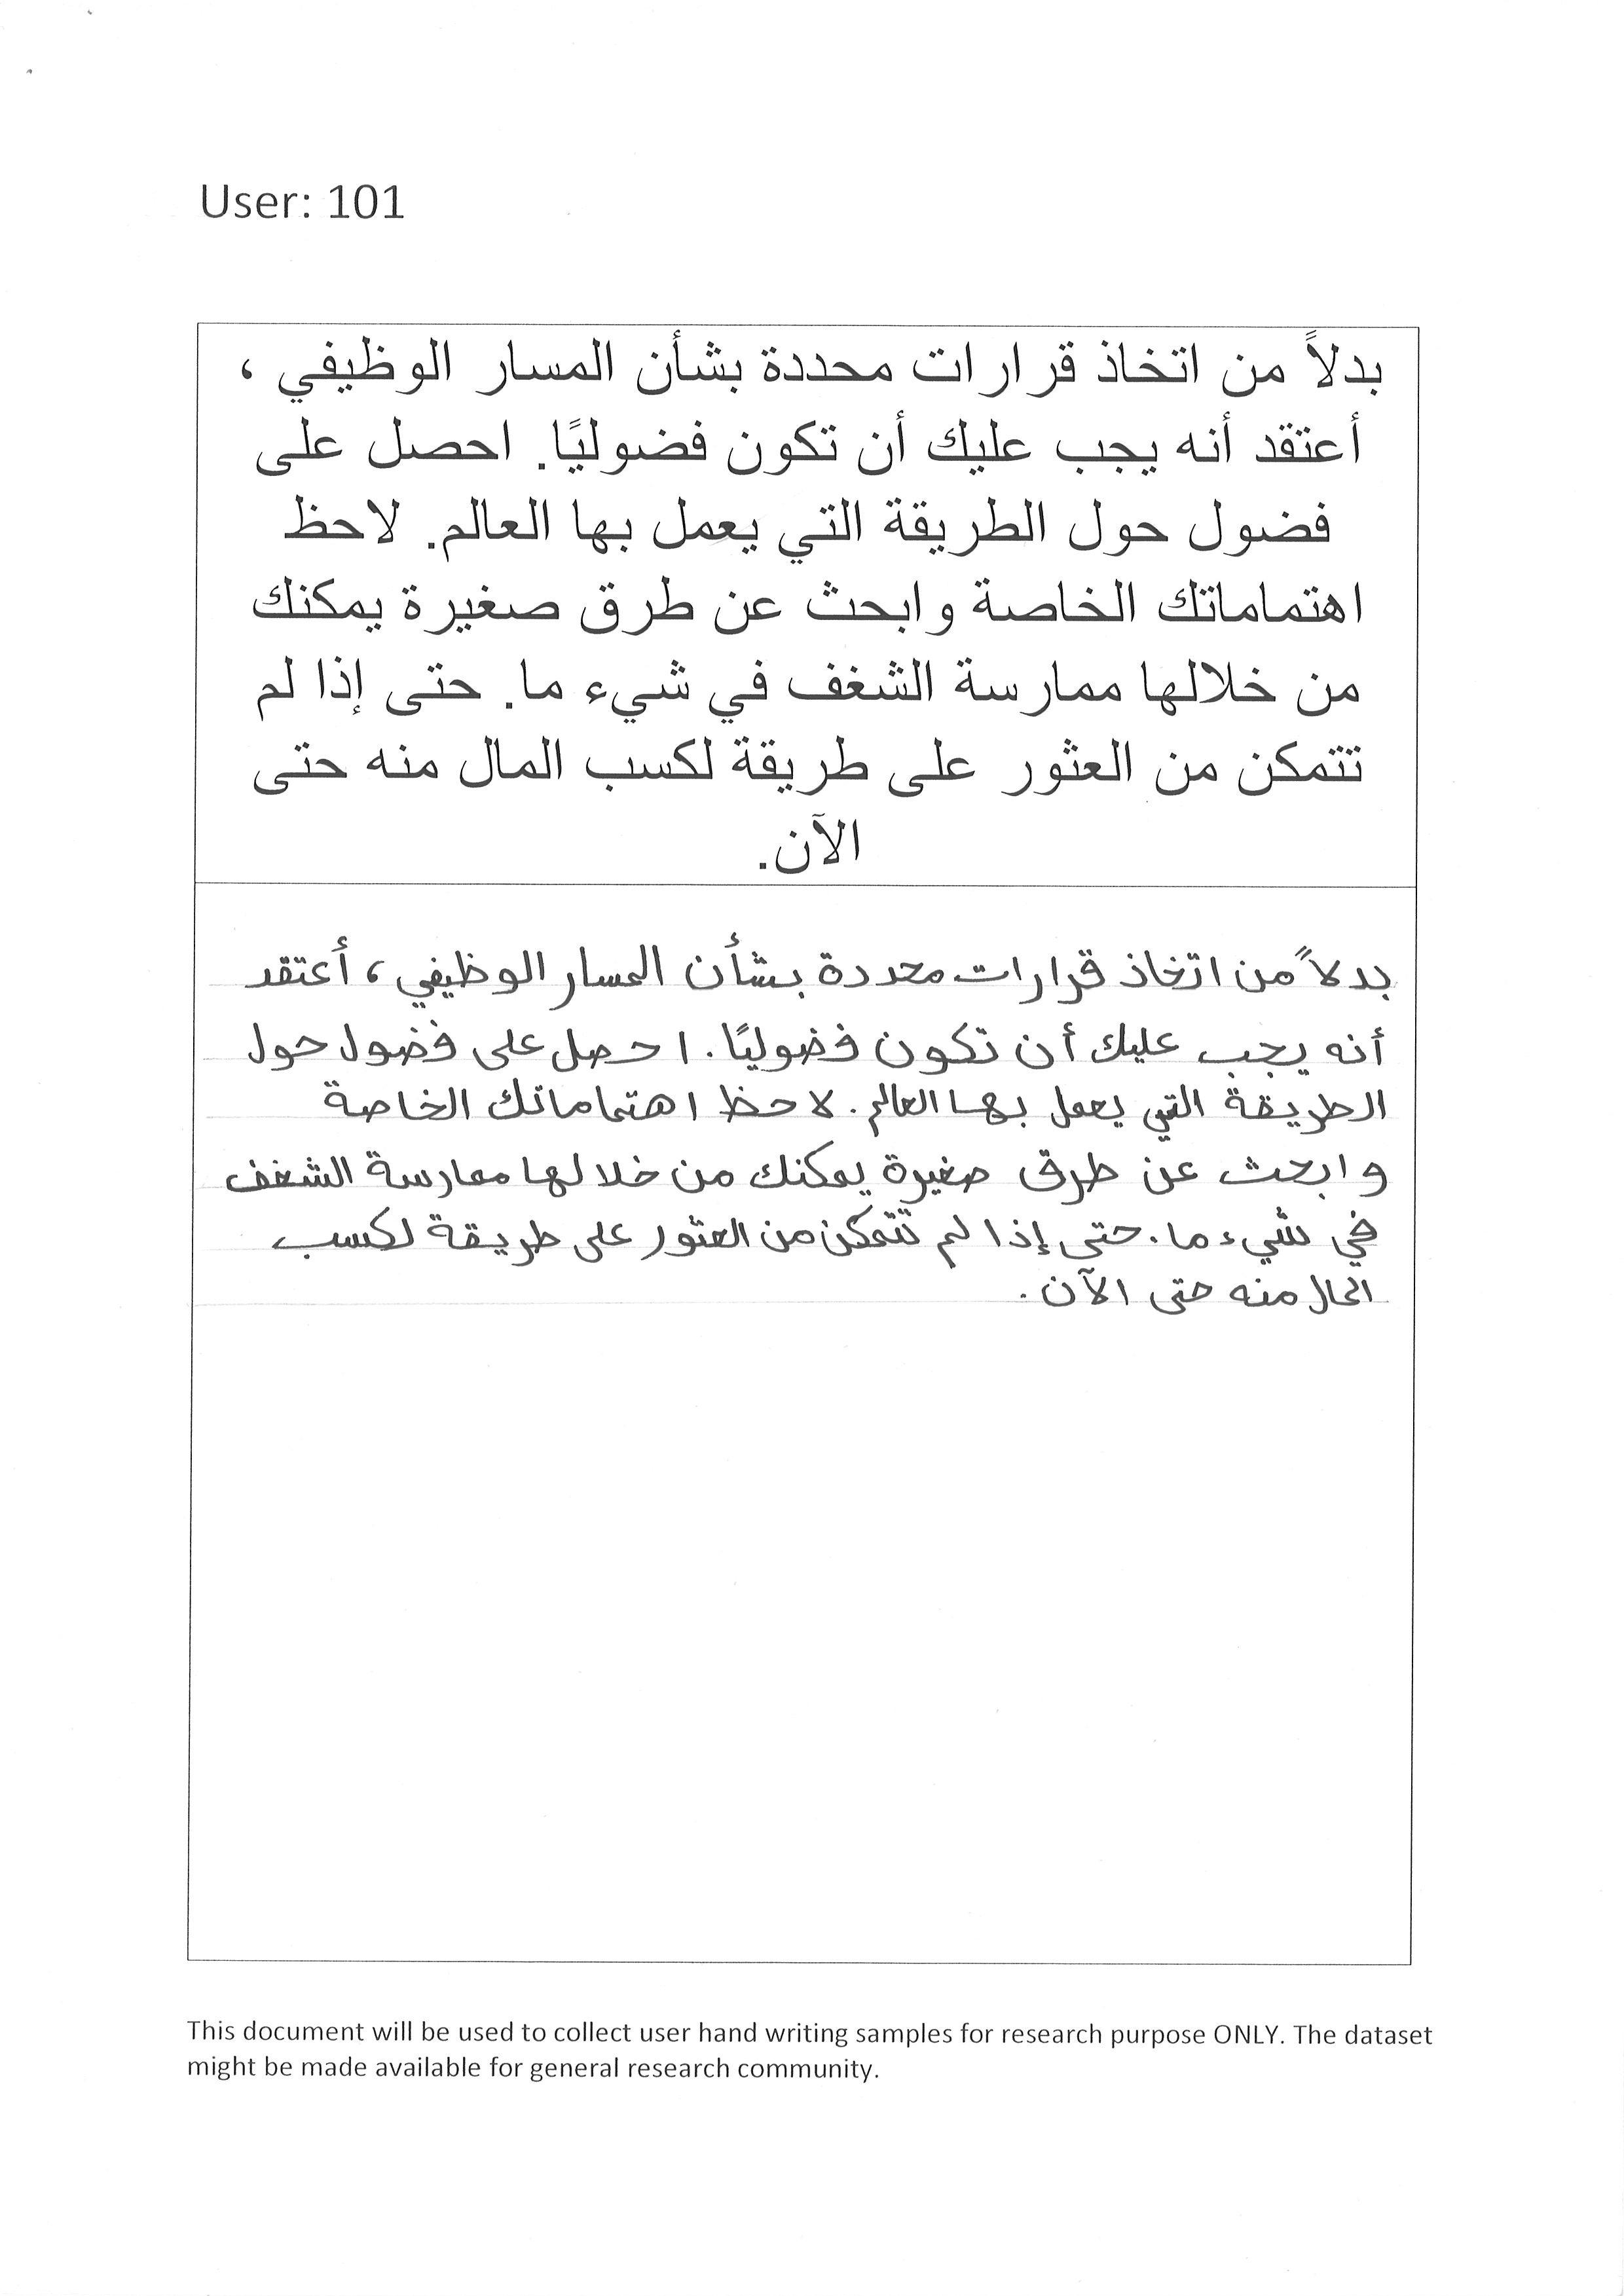 User: 101
بدلاً من اتخاذ قرارات محددة بشأن المسار الوظيفي ،
أعتقد أنه يجب عليك أن تكون فضوليًا. احصل على
فضول حول الطريقة التي يعمل بها العالم. لاحظ
اهتماماتك الخاصة وابحث عن طرق صغيرة يمكنك
من خلالها ممارسة الشغف في شيء ما. حتى إذا لم
تتمكن من العثور على طريقة لكسب المال منه حتى
الآن.
بدلاً من اتخاذ قرارات محددة بشأن المسار الوظيفي ، أعتقد
أنه يجب عليك أن تكون فضوليًا. احصل على فضول حول
الطريقة التي يعمل بها العالم. لاحظ اهتماماتك الخاصة
وابحث عن طرق صغيرة يمكنك من خلالها ممارسة الشغف
في شيء ما. حتى إذا لم تتمكن من العثور على طريقة لكسب
المال منه حتى الآن.
This document will be used to collect user hand writing samples for research purpose ONLY. The dataset
might be made available for general research community.